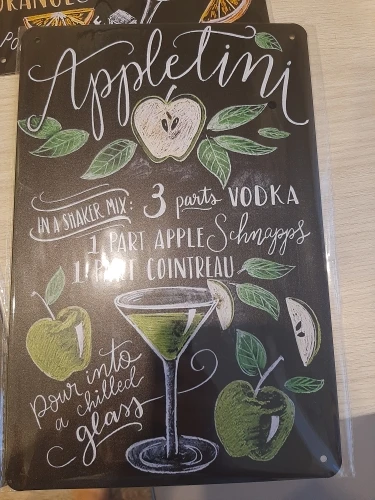 RANGES
Appletini
IN A SHAKER MIX: 3 parts VODKA
1 PART APPLE Schnapps
1 PART COINTREAU
pour into
a chilled
glass